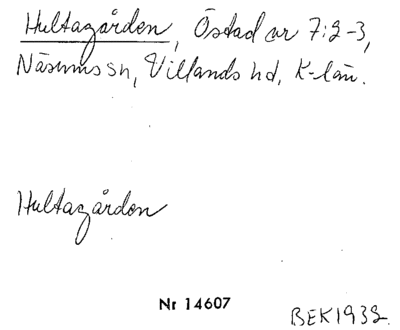 Hultagården, Östad av 7:2-3,
Näsums sn, Villands hd, K-län.
Hultagården
Nr 14607
BEK1932